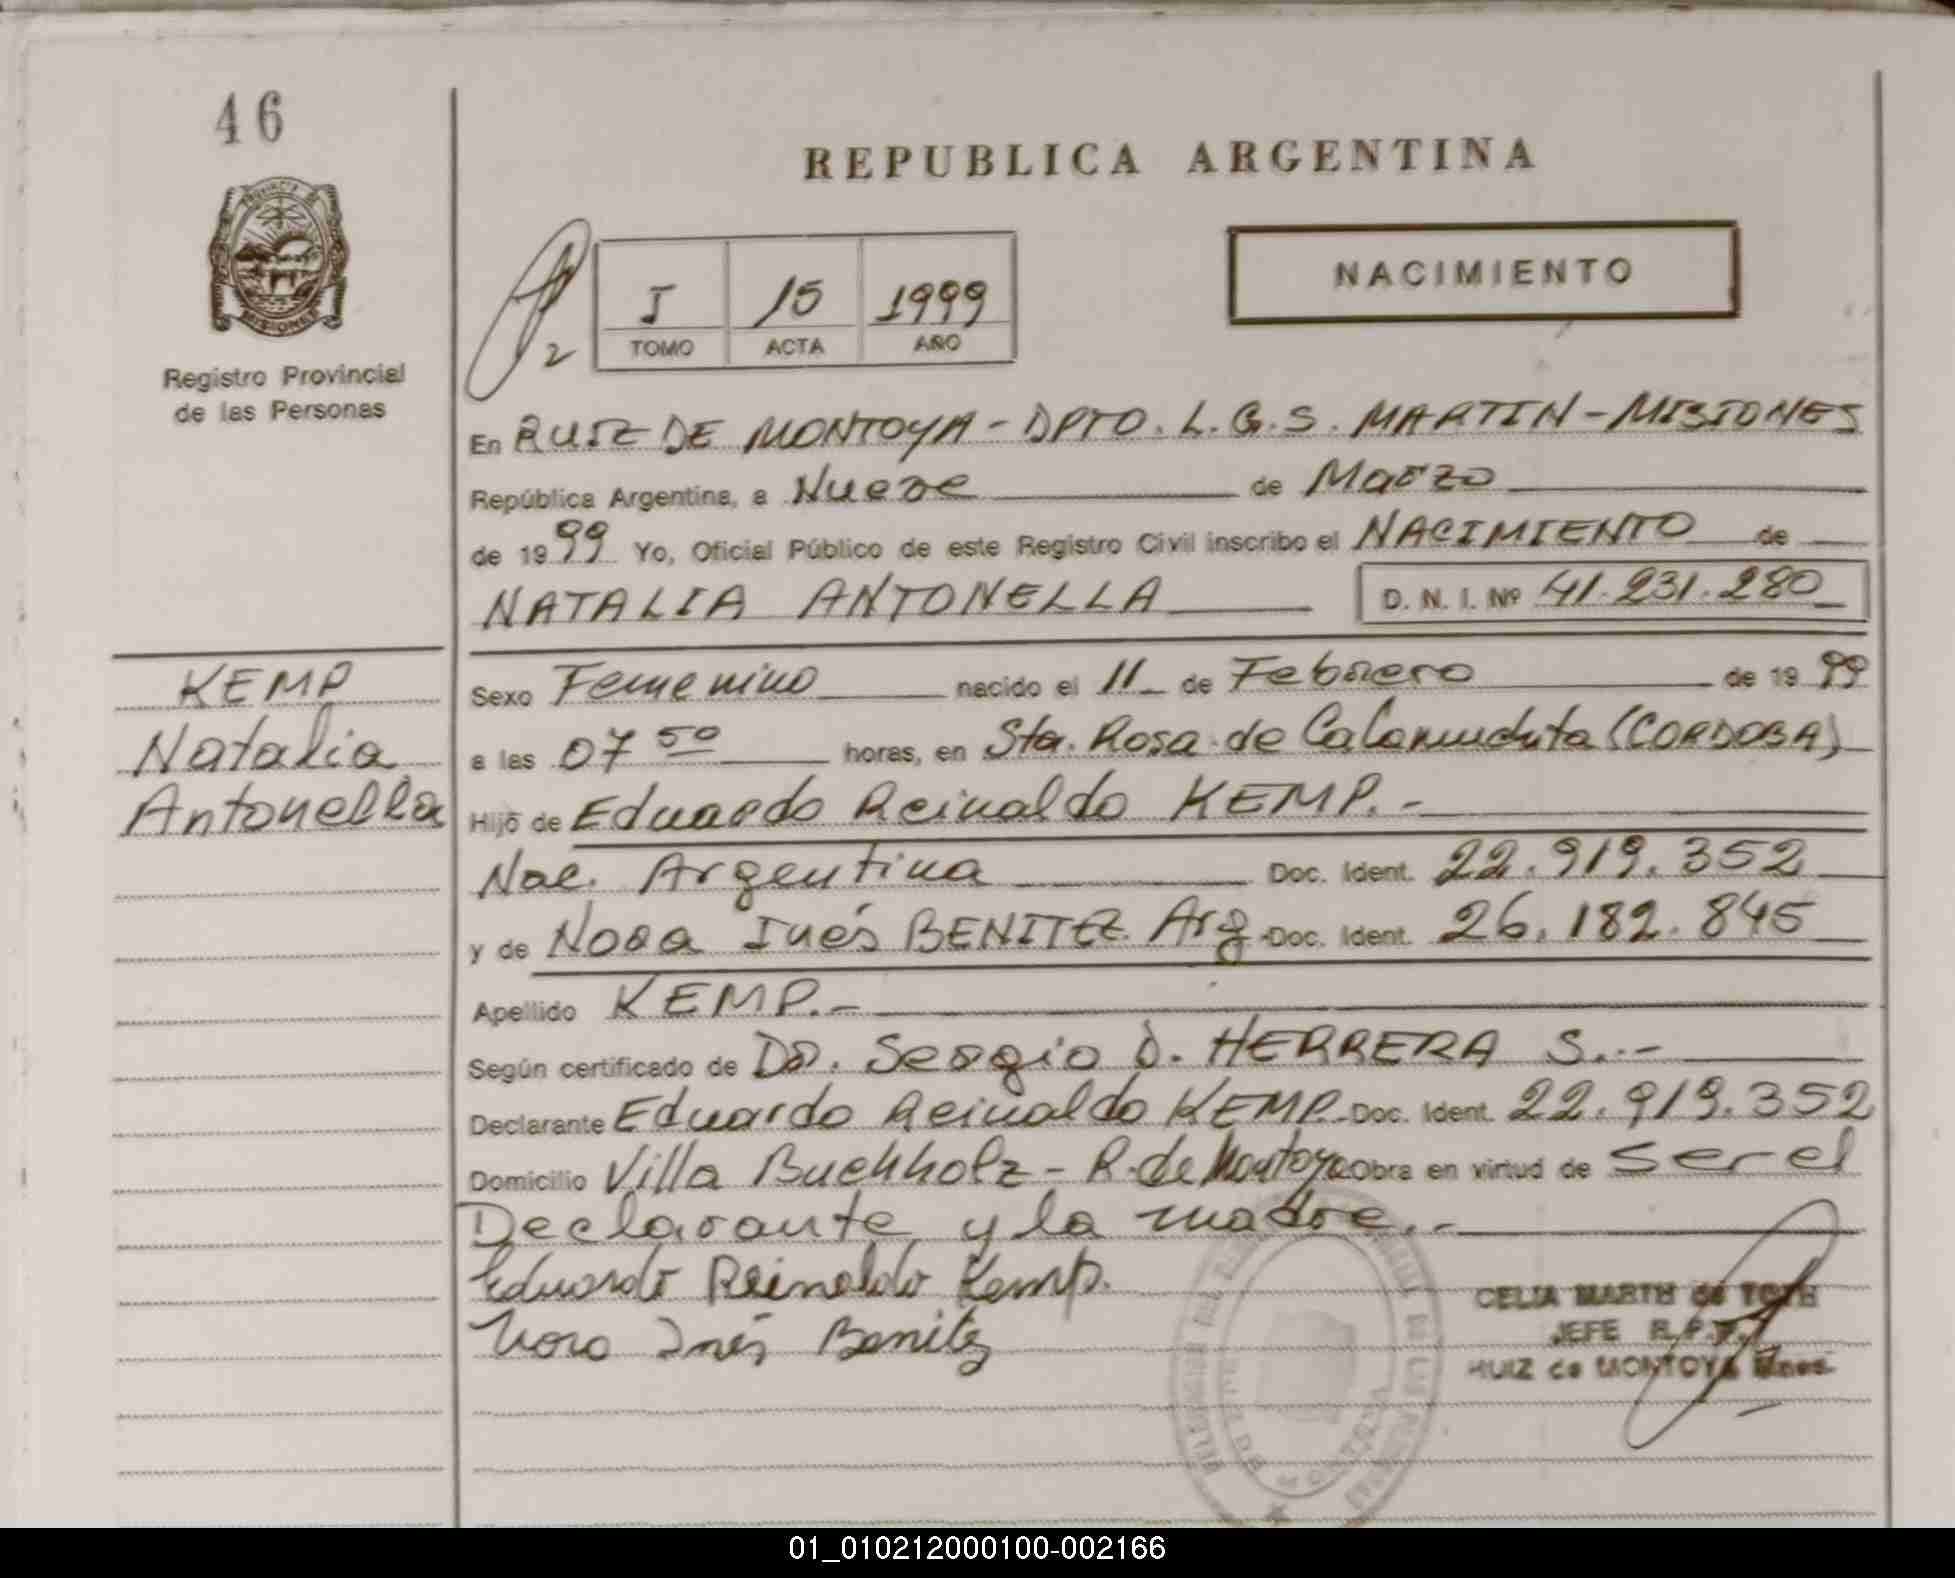 46
REPUBLICA ARGENTINA
PROVINCIA DE
MISIONES
Registro Provincial
de las Personas
2
I 15 1999
TOMO ACTA AÑO
NACIMIENTO
En RUIZ DE MONTOYA - DPTO. L.G.S. MARTIN - MISIONES
República Argentina, a Nueve de Marzo
de 1999 Yo, Oficial Público de este Registro Civil inscribo el NACIMIENTO de
NATALIA ANTONELLA D. N. I. Nº 41.231.280
KEMP
Natalia
Antonella
Sexo Femenino nacido el 11 de Febrero de 1999
a las 07 50 horas, en Sta. Rosa de Calamuchita (CORDOBA)
Hijo de Eduardo Reinaldo KEMP.-
Nac. Argentina Doc. Ident. 22.919.352
y de Nora Inés BENITEZ Arg. Doc. Ident. 26.182.845
Apellido KEMP.-
Según certificado de Dr. Sergio D. HERRERA S..-
Declarante Eduardo Reinaldo KEMP. Doc. Ident. 22.919.352
Domicilio Villa Buchholz - R. de Montoya Obra en virtud de ser el
Declarante y la madre..-
Eduardo Reinaldo Kemp.
Nora Inés Benitez
CELIA MARTH de TOTH
JEFE R.P.P.
RUIZ de MONTOYA Mnes.
01_010212000100-002166